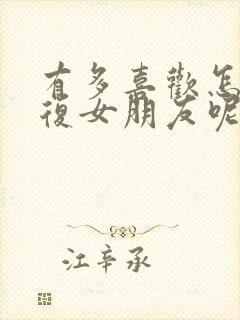 有多喜歡怎
復女朋友呢
江辛承